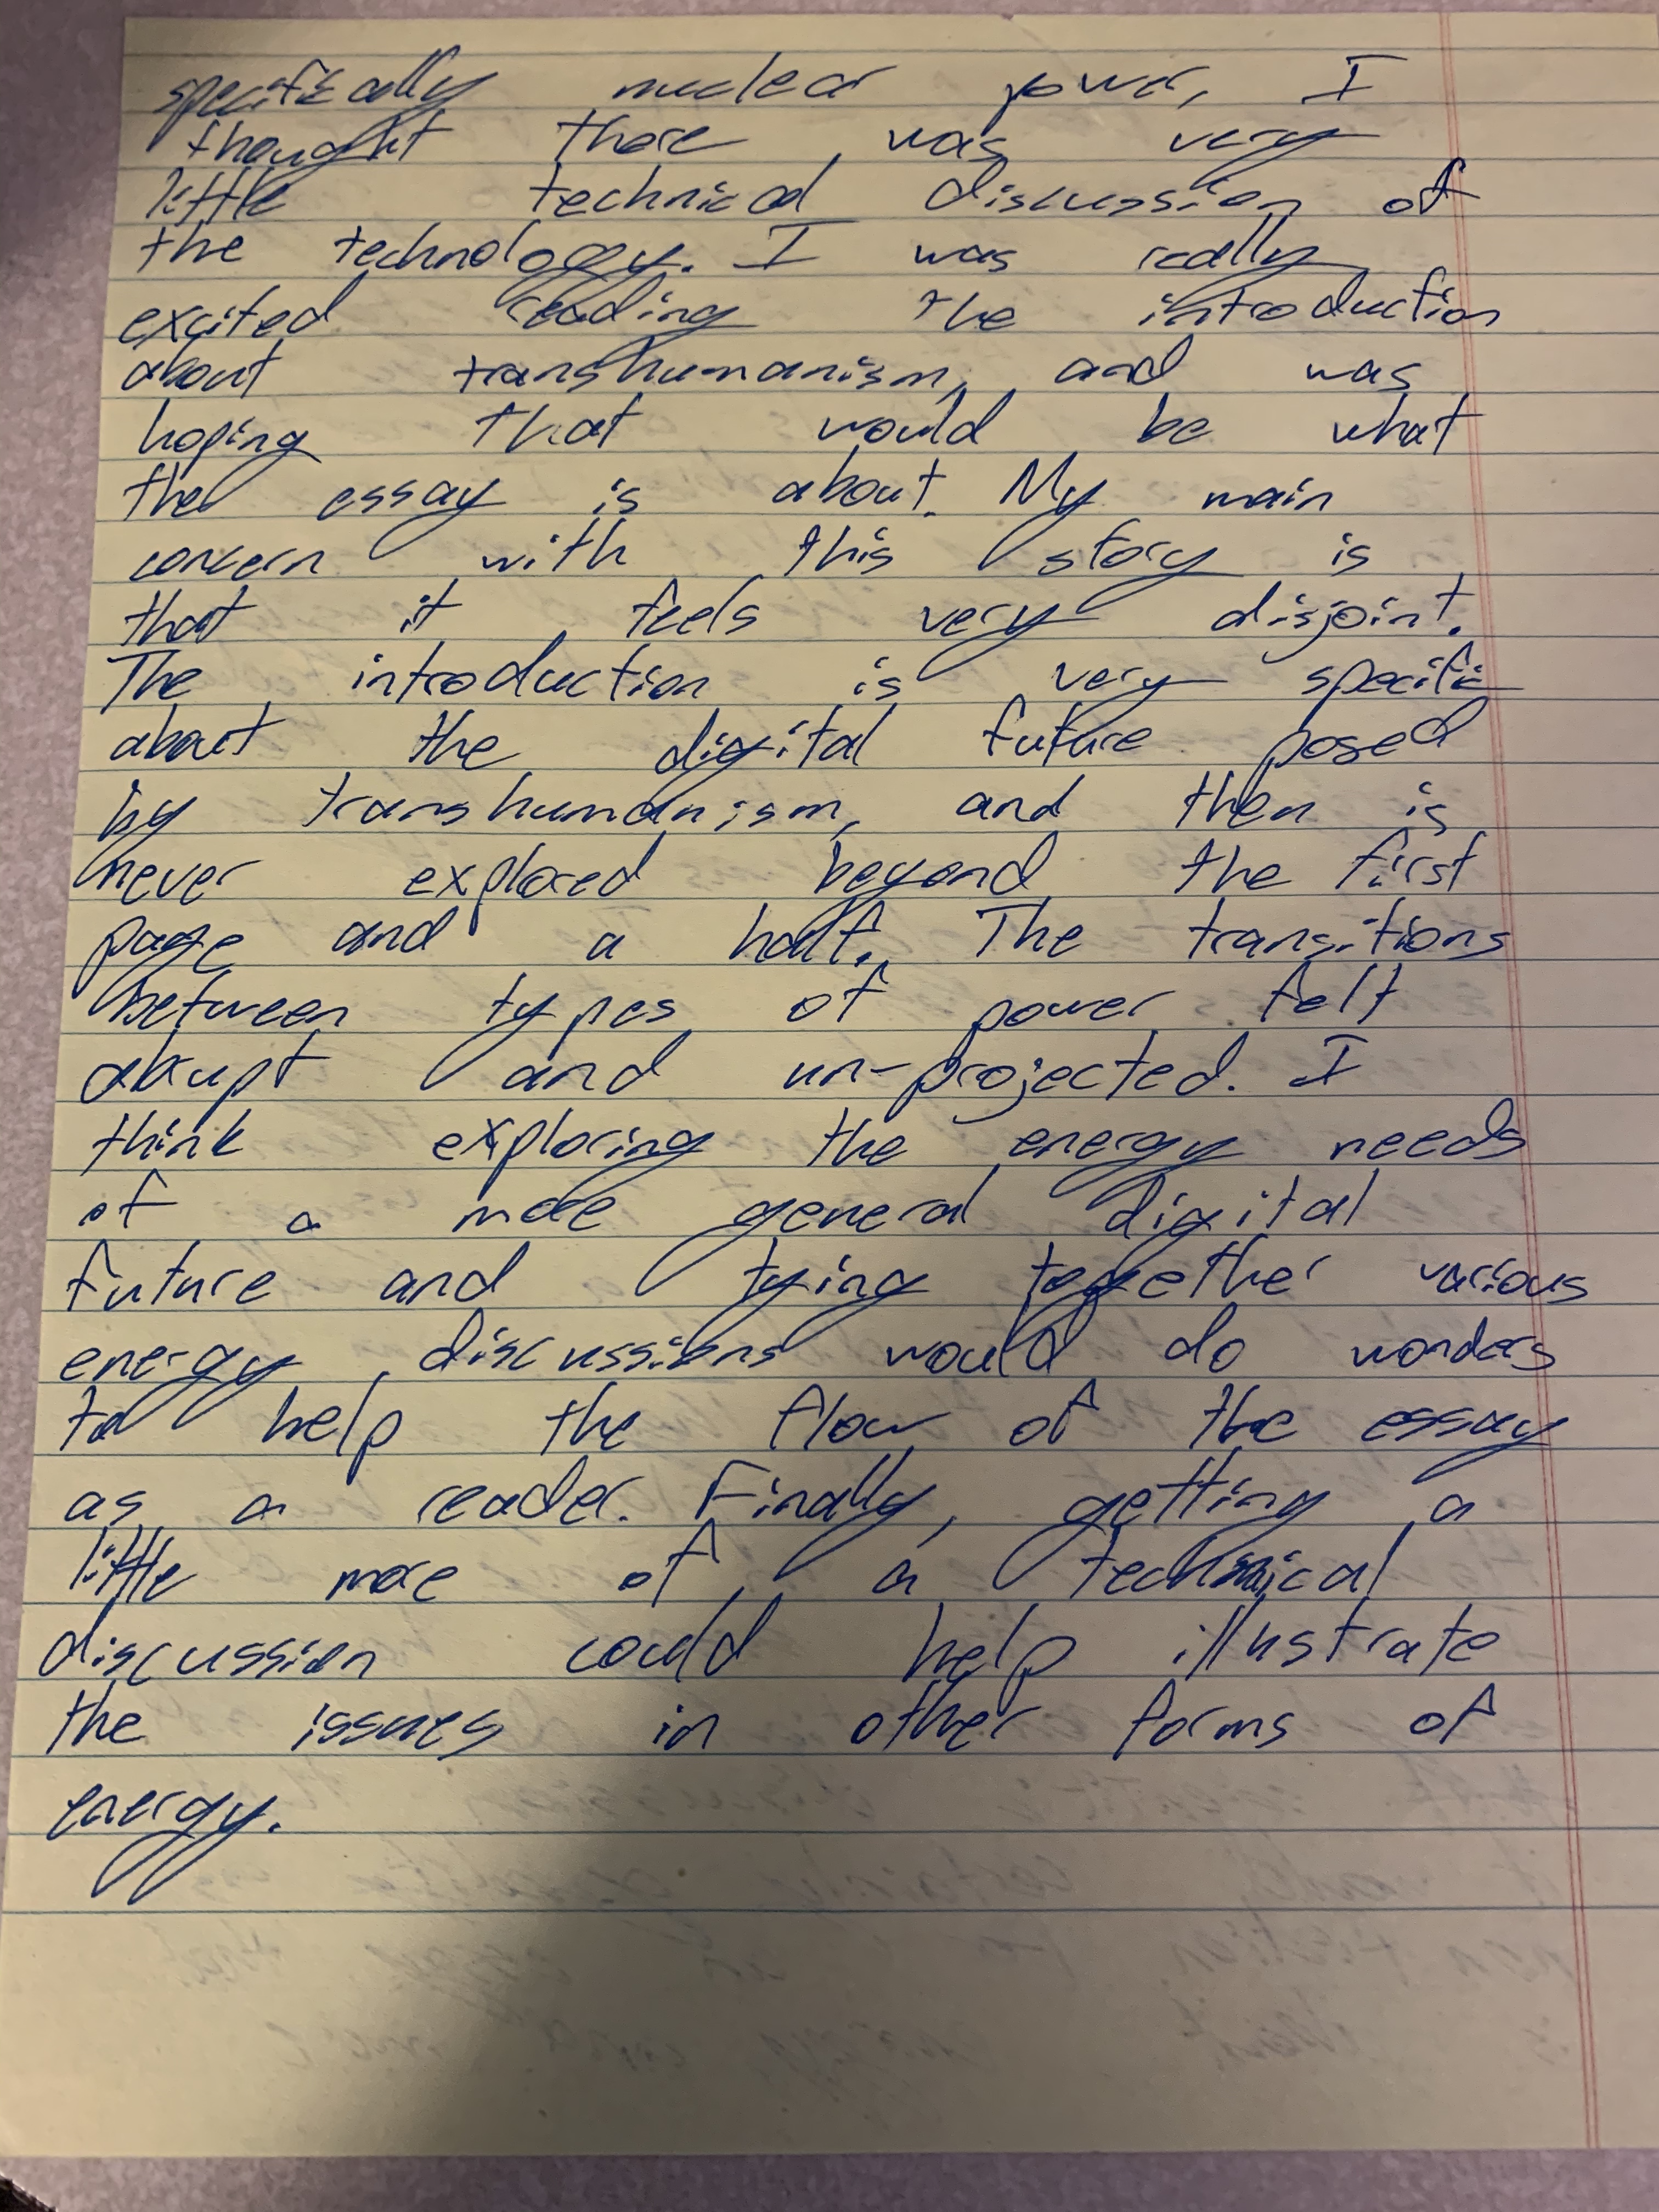 specifically nuclear power, I
thought there was very
little technical discussion of
the technology. I was really
excited reading the introduction
about transhumanism, and was
hoping that would be what
the essay is about. My main
concern with this story is
that it feels very disjoint.
The introduction is very specific
about the digital future posed
by transhumanism, and then is
never explored beyond the first
page and a half. The transitions
between types of power felt
abrupt and un-projected. I
think exploring the energy needs
of a more general digital
future and tying together various
energy discussions would do wonders
to help the flow of the essay
as a reader. Finally, getting a
little more of a technical
discussion could help illustrate
the issues in other forms of
energy.